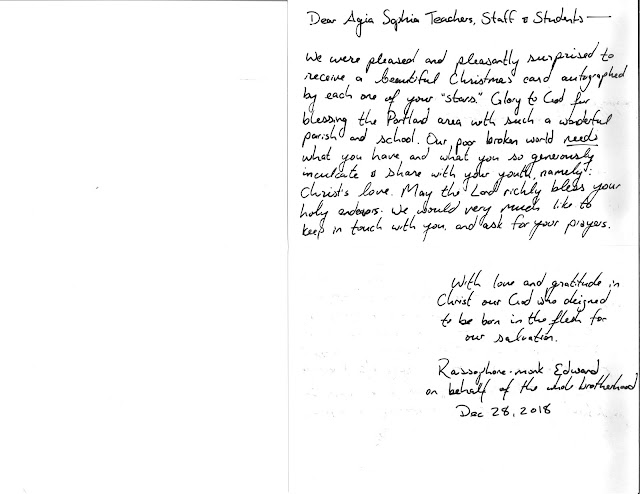 Dear Agia Sophia Teachers, Staff & Students—
We were pleased and pleasantly surprised to
receive a beautiful Christmas card autographed
by each one of your "stars." Glory to God for
blessing the Portland area with such a wonderful
parish and school. Our poor broken world needs
what you have, and what you so generously
inculcate & share with your youth, namely:
Christ's love. May the Lord richly bless your
holy endeavors. We would very much like to
keep in touch with you, and ask for your prayers.
With love and gratitude in
Christ our God who deigned
to be born in the flesh for
our salvation.
Rassophore-monk Edward
on behalf of the whole brotherhood
Dec 28, 2018